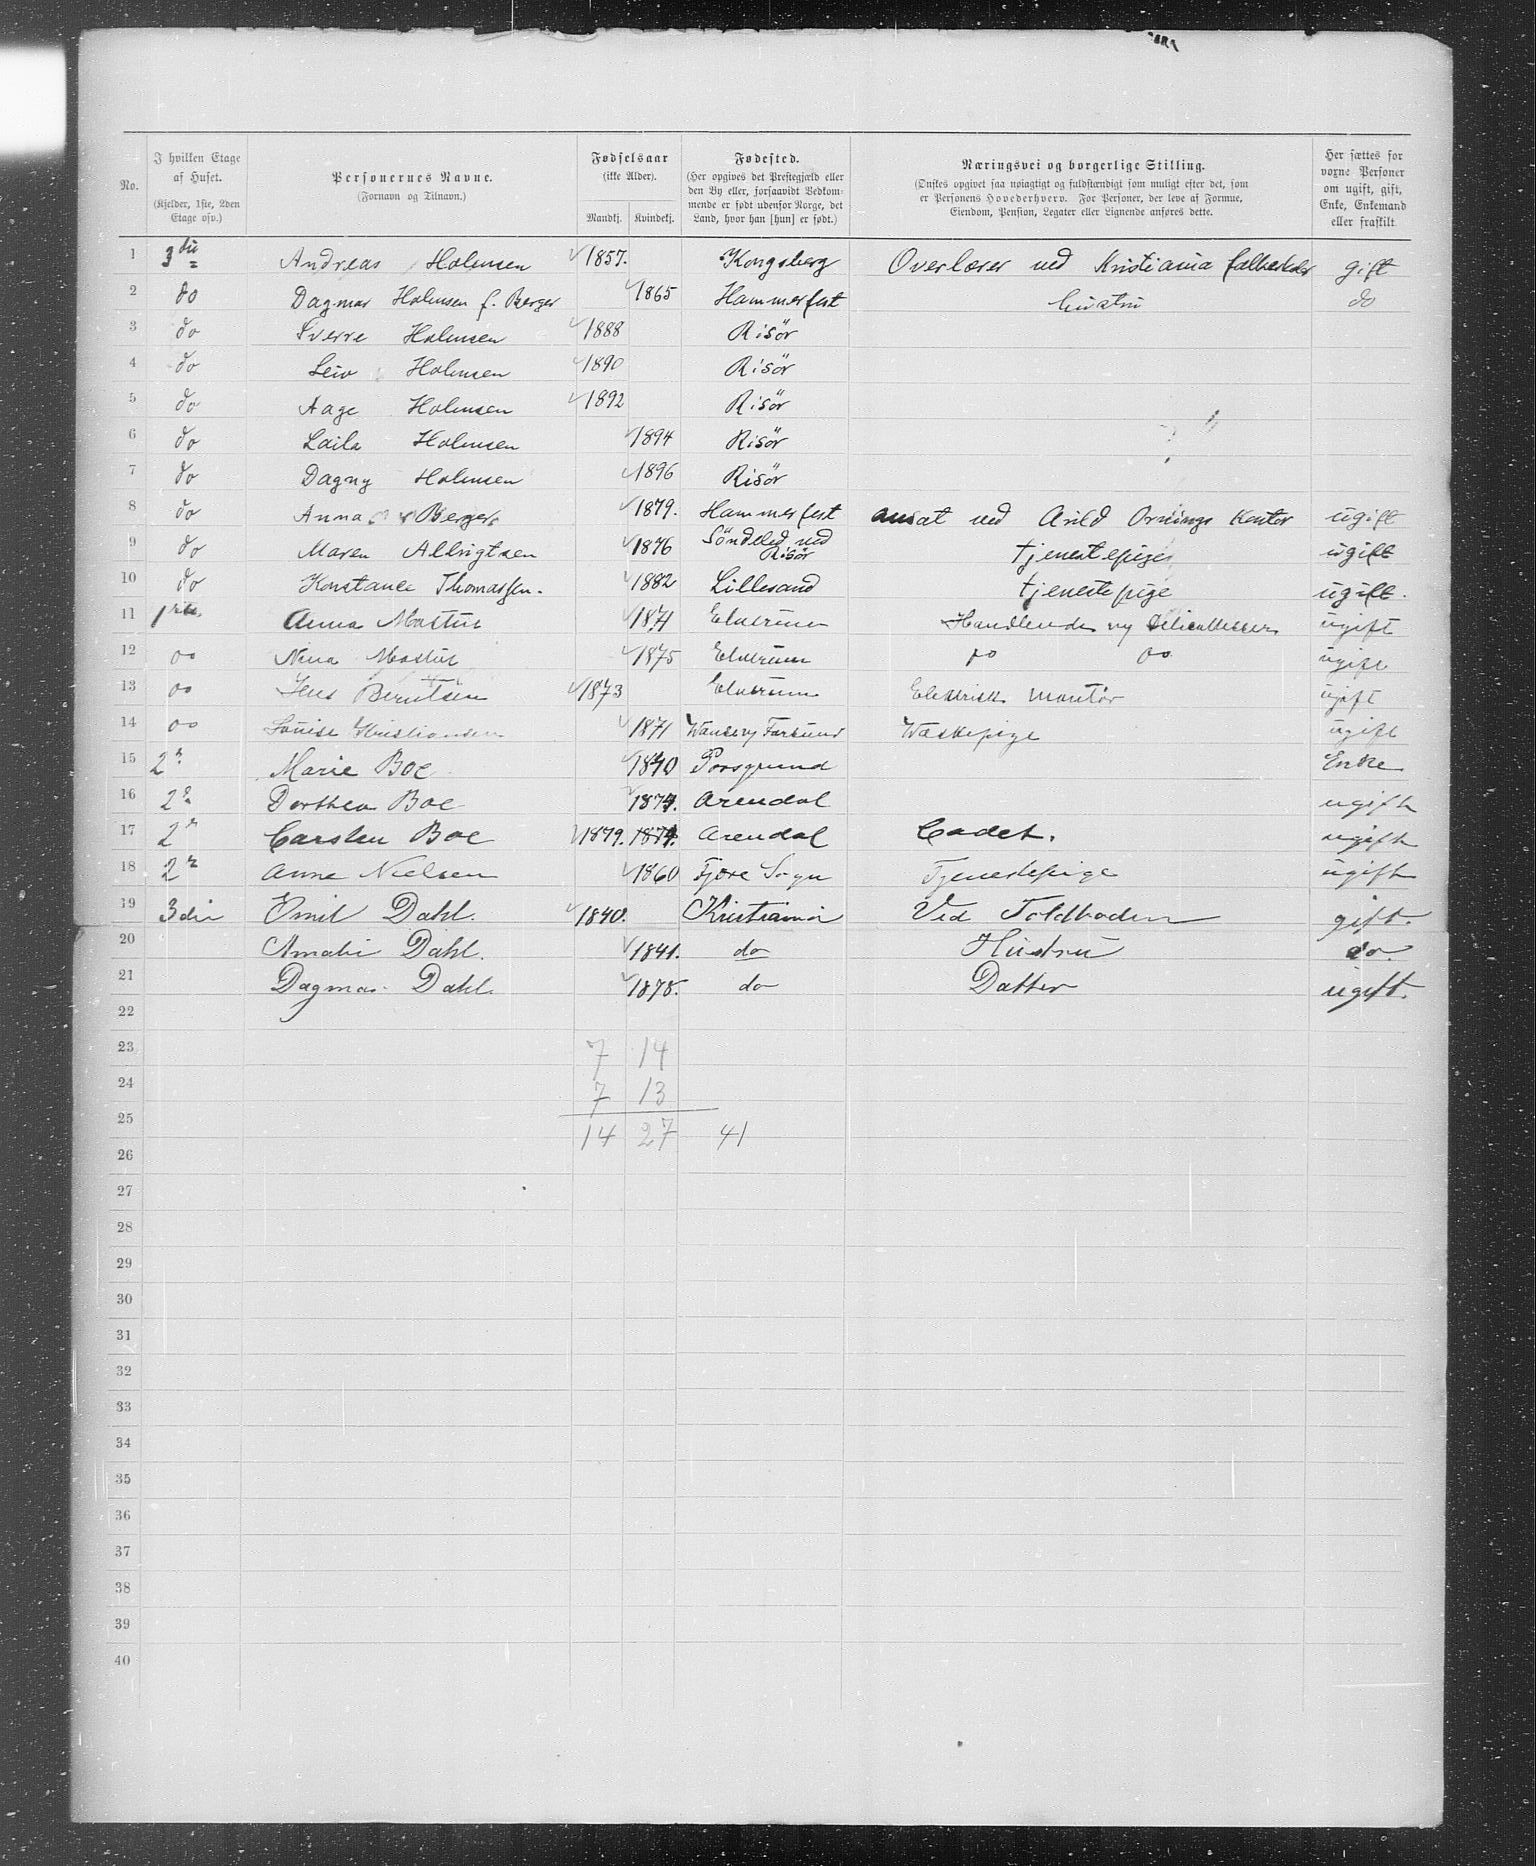 No. | I hvilken Etage af Huset. (Kjelder, 1ste, 2den Etage osv.) | Personernes Navne. (Fornavn og Tilnavn.) | Fødselsaar (ikke Alder). Mandkj. | Kvindekj. | Fødested. (Her opgives det Prestegjæld eller den By eller, forsaavidt Vedkommende er født udenfor Norge, det Land, hvor han [hun] er født.) | Næringsvei og borgerlige Stilling. (Ønskes opgivet saa nøiagtigt og fuldstændigt som muligt efter det, som er Personens Hovederhverv. For Personer, der leve af Formue, Eiendom, Pension, Legater eller Lignende anføres dette. | Her sættes for voxne Personer om ugift, gift, Enke, Enkemand eller fraskilt.
1 3die Andreas Holmsen 1857. Kongsberg Overlærer ved Kristiania gift
2 do Dagmar Holmsen f. Berger 1865 Hammerfest hustru do
3 do Sverre Holmsen 1888 Risör
4 do Leiv Holmsen 1890 Risör
5 do Aage Holmsen 1892 Risör
6 do Laila Holmsen 1894 Risör
7 do Dagny Holmsen 1896 Risör
8 do Anna Berger 1879. Hammerfest ansat ved Arild Kontor ugift
9 do Maren Albrigtsen 1876 Söndeled ved Risör tjenestepige ugift
10 do Konstance Thomassen. 1882 Lillesand tjenestepige ugift.
11 1ste Anna Mostue 1871 Elverum Handlende ugift
12 do Nina Mostue 1875 Elverum do do ugift
13 do Jens Berntsen 1873 Elverum Elektrisk Montör ugift
14 do Louise Kristiansen 1871 Farsund Vaskepige ugift
15 2 Marie Boe 1840 Porsgrund Enke
16 2 Dorthea Boe 1874. Arendal ugift
17 2 Carsten Boe 1879. 1874. Arendal Cadet. ugift
18 2 Anne Nielsen 1860 Fjære Sogn Tjenestepige ugift
19 3die Emil Dahl. 1840. Kristiania Ved Toldboden gift.
20 Amalie Dahl. 1841. do Hustru do.
21 Dagmar Dahl. 1875. do Datter ugift.
22
23 7 14
24 7 13
25 14 27 41
26
27
28
29
30
31
32
33
34
35
36
37
38
39
40